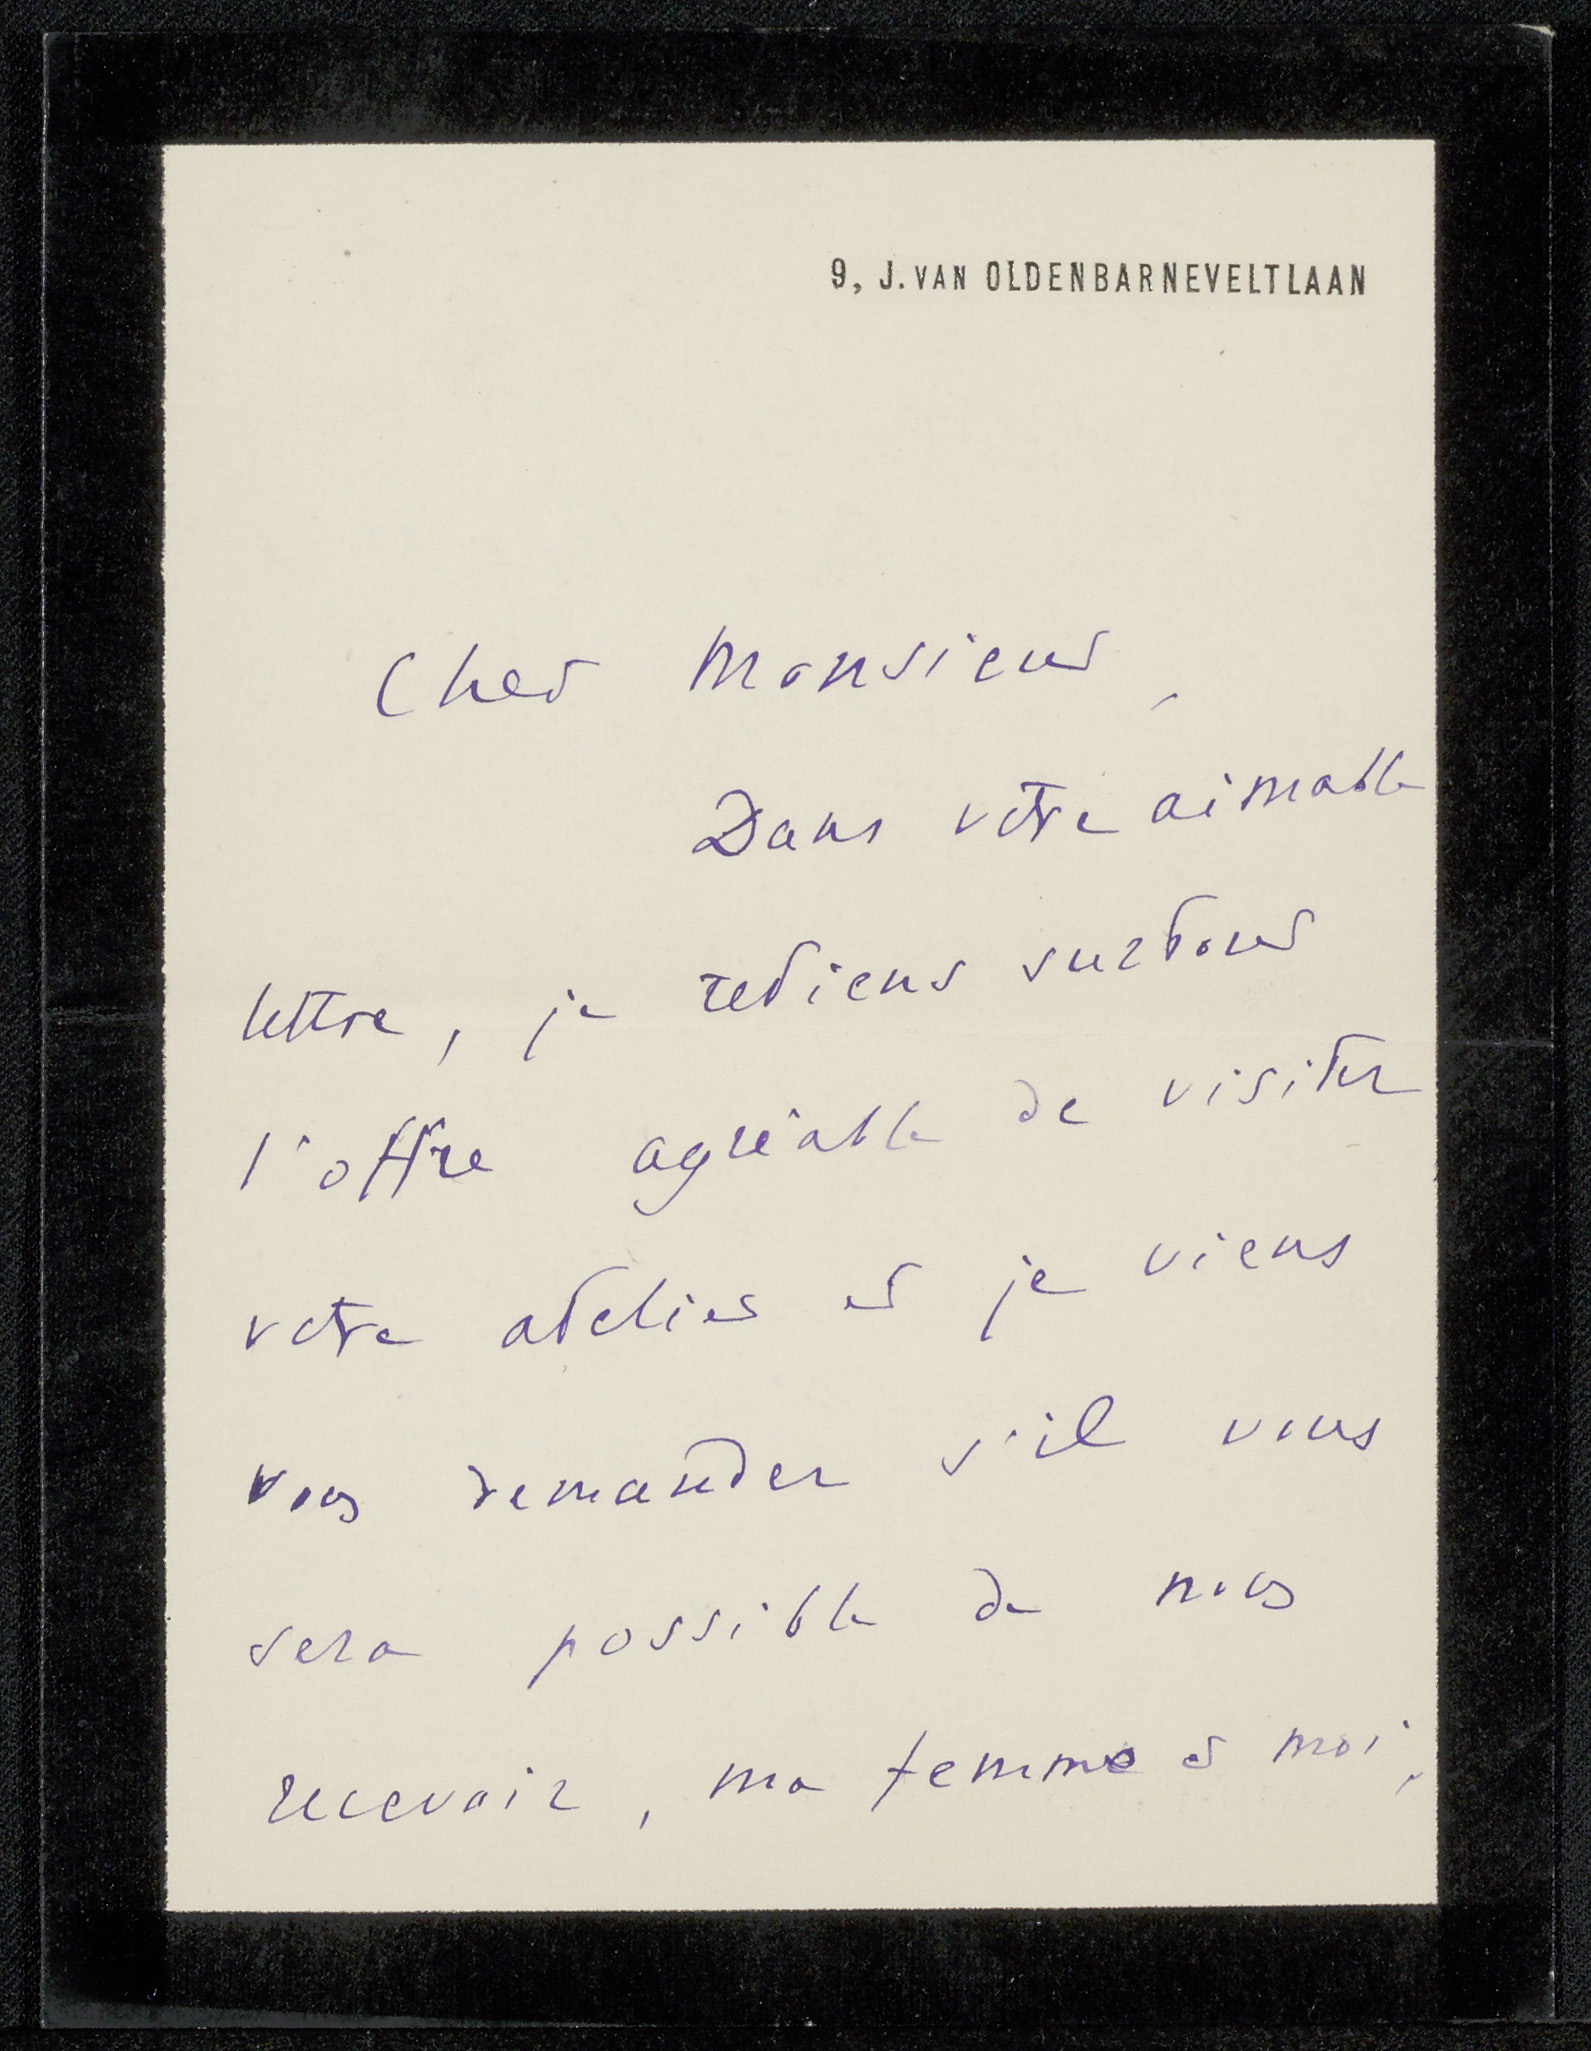 9, J. VAN OLDENBARNEVELTLAAN
Cher Monsieur,
Dans votre aimable
lettre, je retiens surtout
l'offre agréable de visiter
votre atelier et je viens
vous demander s'il vous
sera possible de nous
recevoir, ma femme et moi,